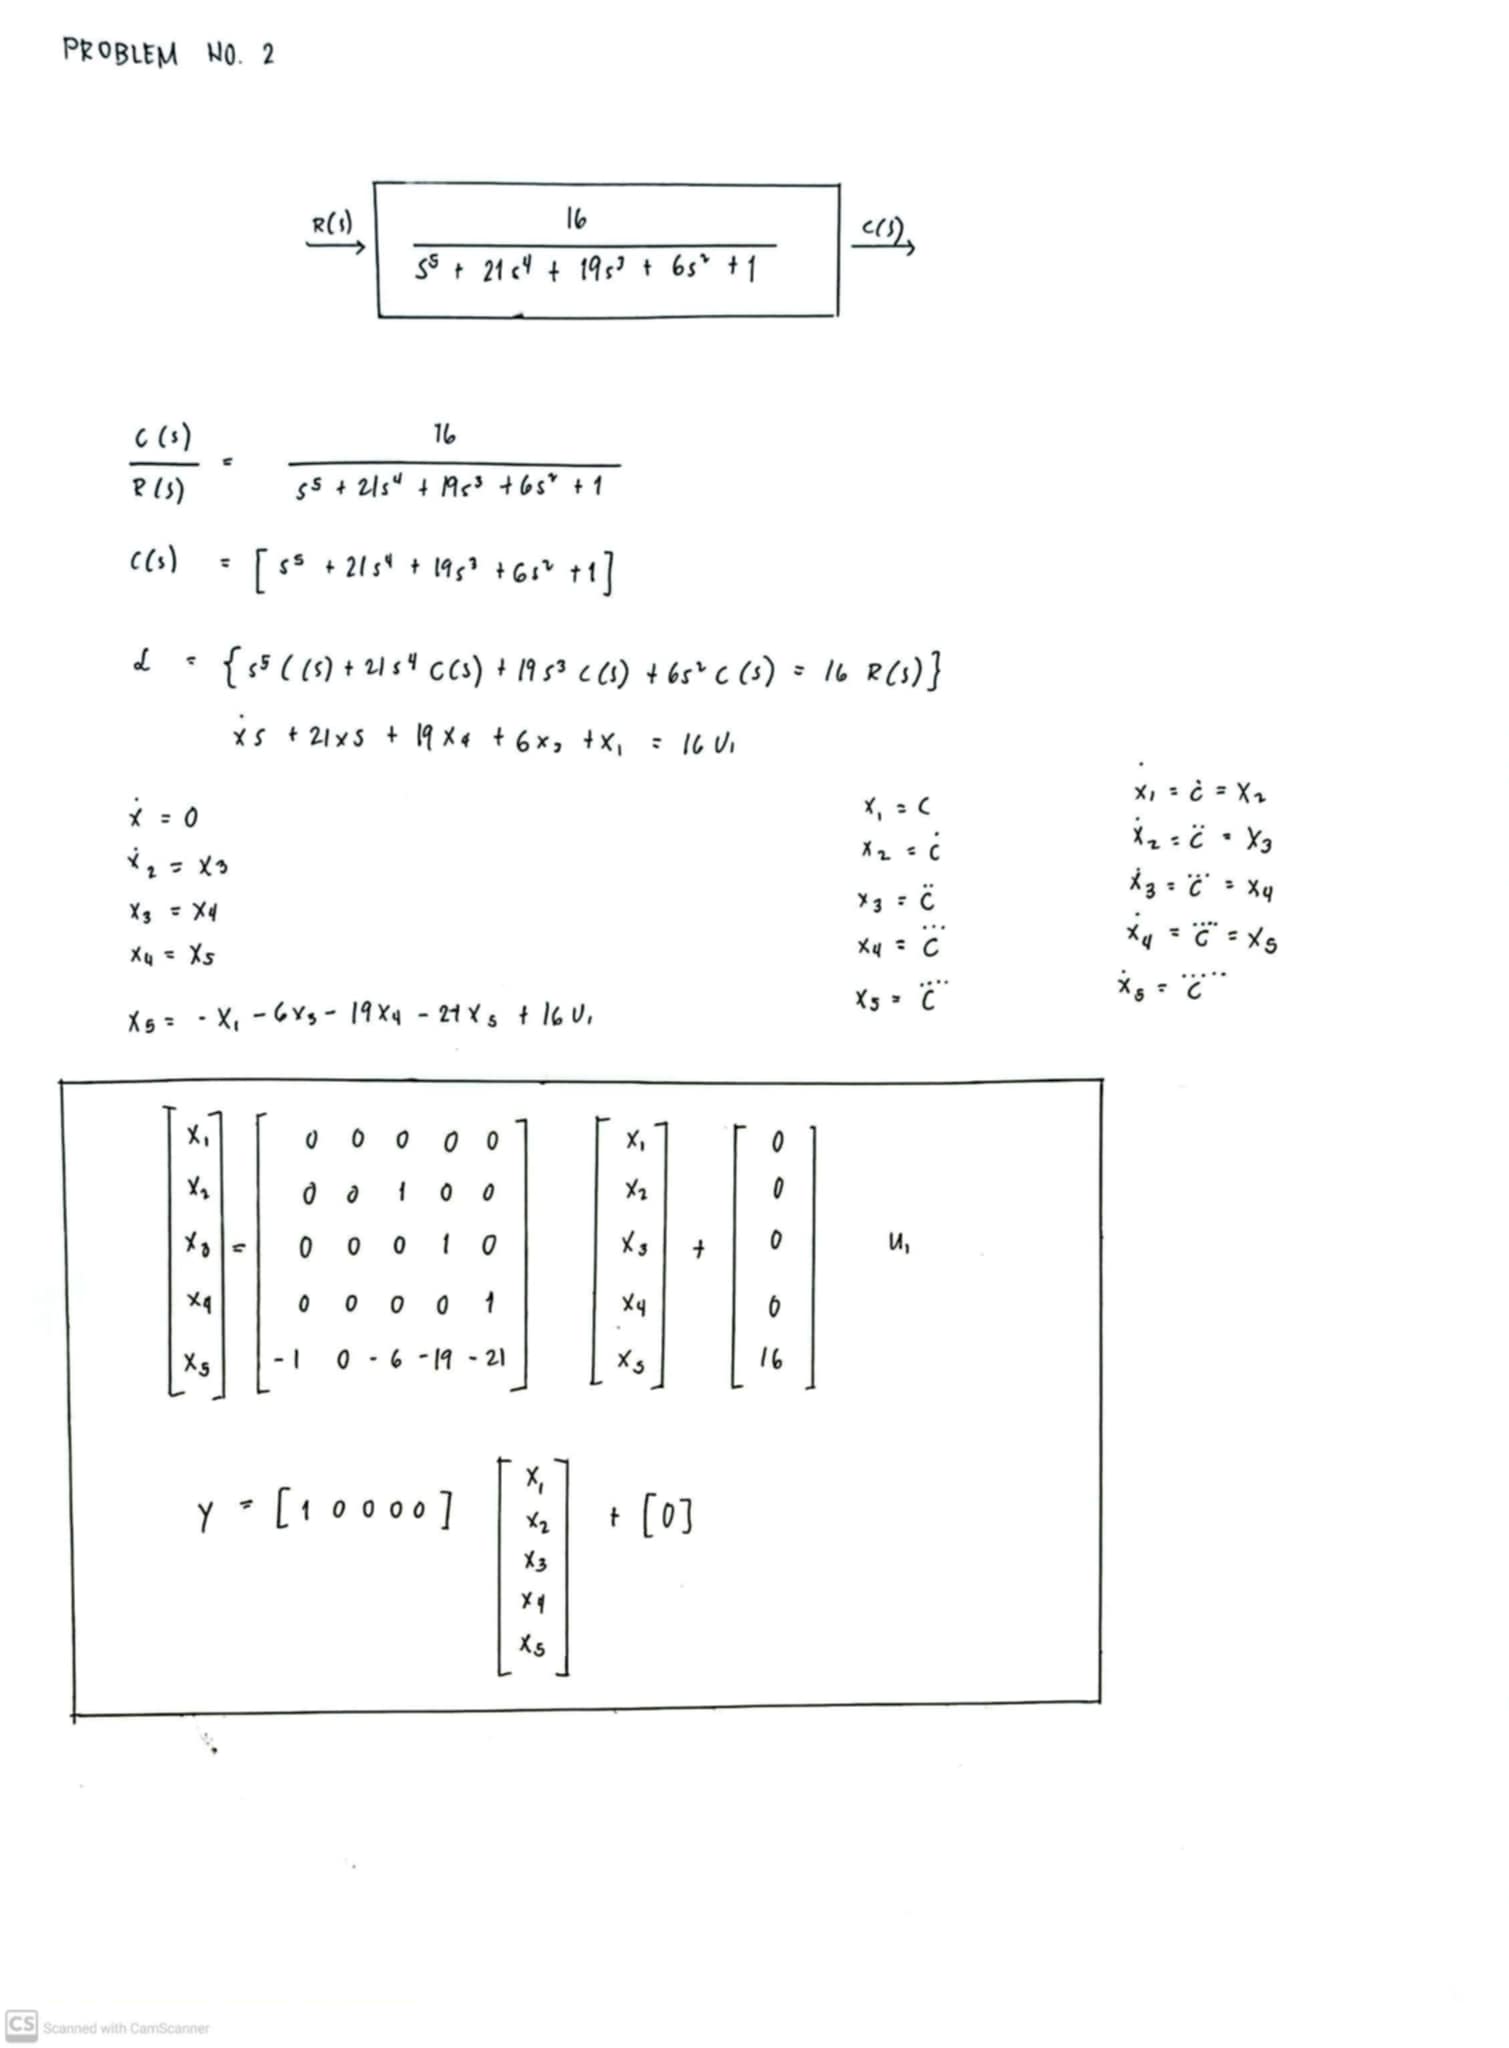 PROBLEM NO. 2
R(s)
16
C(s)
s⁵ + 21s⁴ + 19s³ + 6s² + 1
C(s) / R(s) = 16 / s⁵ + 21s⁴ + 19s³ + 6s² + 1
C(s) = [s⁵ + 21s⁴ + 19s³ + 6s² + 1]
ℒ = {s⁵ C(s) + 21s⁴ C(s) + 19s³ C(s) + 6s² C(s) = 16 R(s)}
ẋ5 + 21x5 + 19x4 + 6x3 + x₁ = 16 U₁
ẋ = 0
ẋ₂ = x3
x₃ = x4
x₄ = x5
x₅ = -x₁ - 6x₃ - 19x₄ - 21x₅ + 16 U₁
x₁ = c
x₂ = ċ
x₃ = c̈
x₄ = c⃛
x₅ = c⃜
ẋ₁ = ċ = x₂
ẋ₂ = c̈ = x₃
ẋ₃ = c⃛ = x₄
ẋ₄ = c⃜ = x₅
ẋ₅ = c⃛̈
x₁ 0 0 0 0 0 x₁ 0
x₂ 0 0 1 0 0 x₂ 0
x₃ = 0 0 0 1 0 x₃ + 0 u₁
x₄ 0 0 0 0 1 x₄ 0
x₅ -1 0 -6 -19 -21 x₅ 16
x₁
y = [1 0 0 0 0] x₂ + [0]
x₃
x₄
x₅
CS Scanned with CamScanner